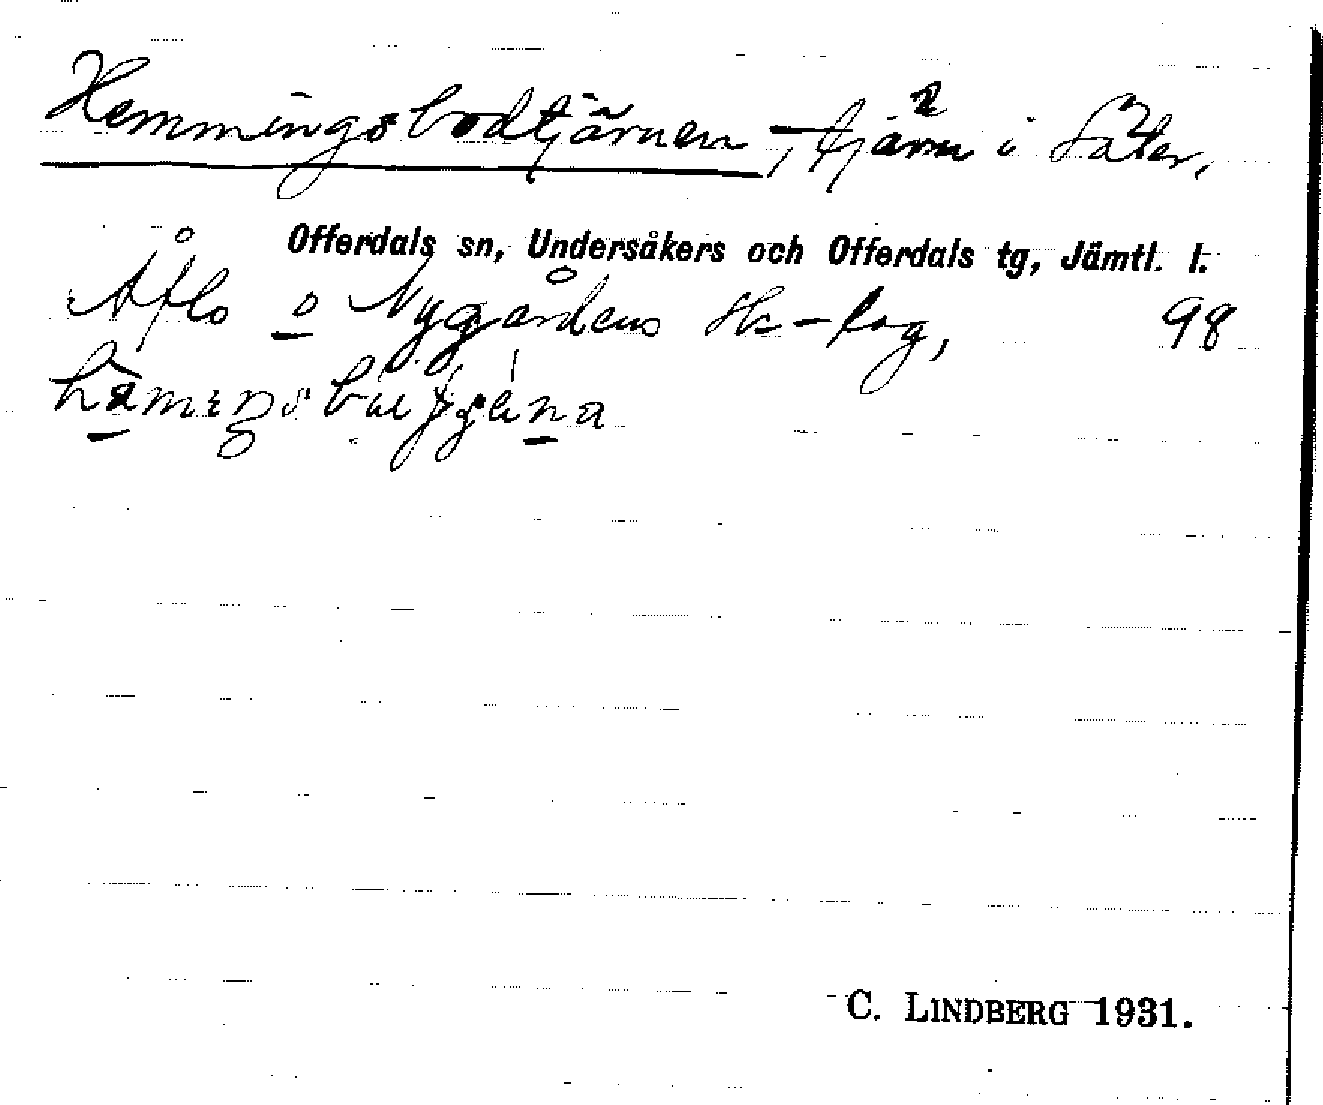 Hemmingsbodtjärnen, tjärn i Såter,
Offerdals sn, Undersåkers och Offerdals tg, Jämtl. l.
Åflo o Nygårdens sk-lag, 98
C. LINDBERG 1931.